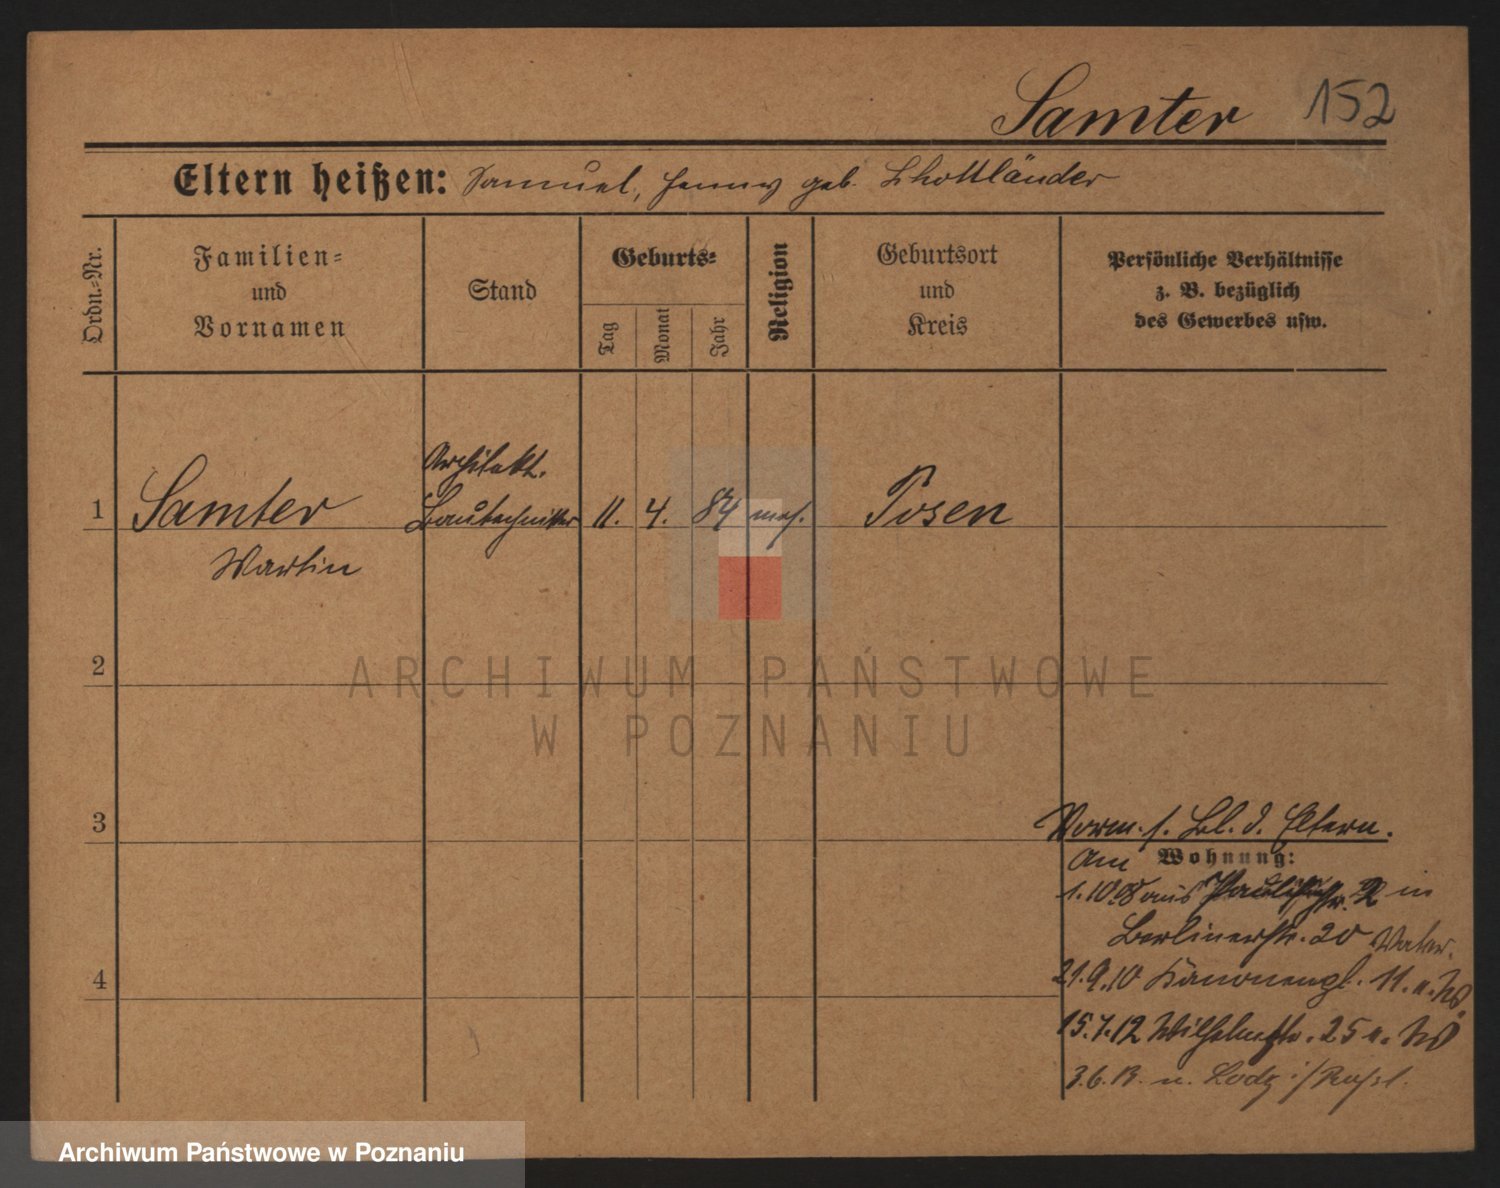 Samter 152
Eltern heißen: Samuel, Jenny geb. Lhottländer
Ordn.-Nr.
Familien-
und
Vornamen
Stand
Geburts-
Tag
Monat
Jahr
Religion
Geburtsort
und
Kreis
Persönliche Verhältnisse
z. B. bezüglich
des Gewerbes usw.
Architekt.
1 Samter Bautechniker 11. 4. 84 mos. Posen
Martin
2
ARCHIWUM PAŃSTWOWE
W POZNANIU
3
Vorm. s. Bl. d. Eltern.
Am Wohnung:
1.10.08 aus Paulikirchstr. 2 in
Berlinerstr. 20 Vater.
4
21.9.10 Kanonenpl. 11.
15.7.12 Wilhelmstr. 25
3.6.13. n. Lodz i/Russl.
Archiwum Państwowe w Poznaniu